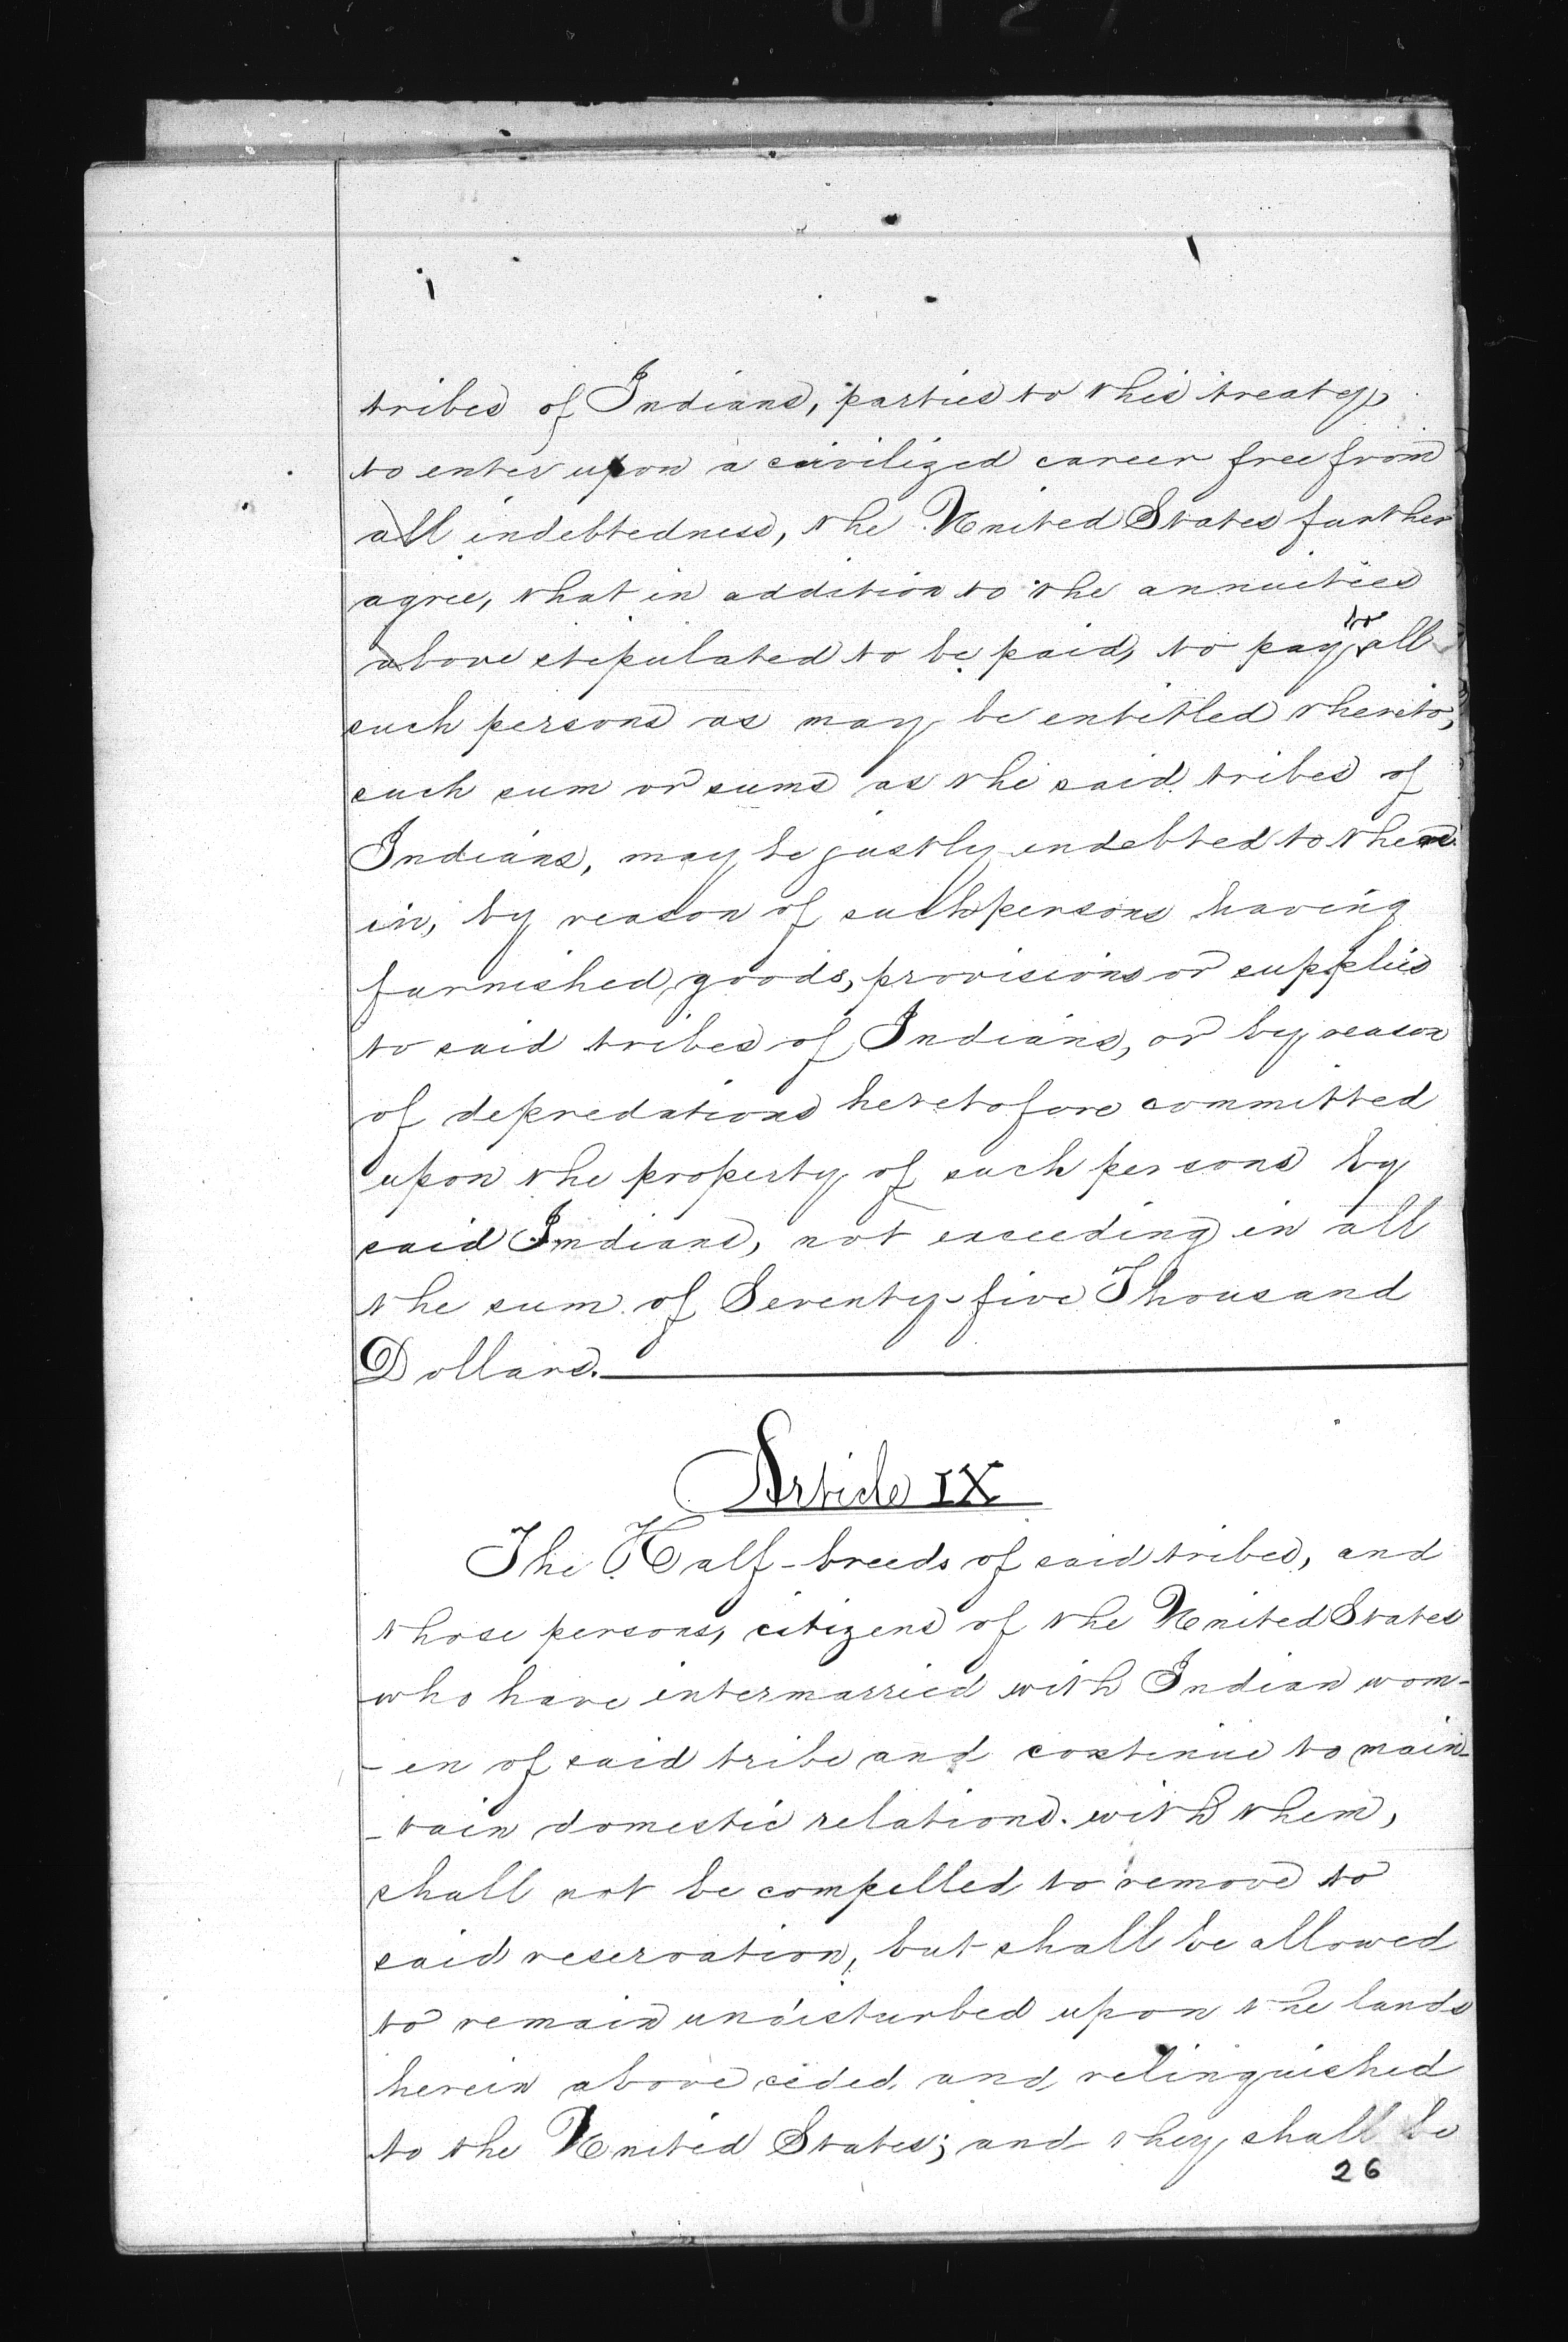 tribes of Indians, parties to this treaty,
to enter upon a civilized career free from
all indebtedness, the United States further
agree, that in addition to the annuities
above stipulated to be paid, to pay to all
such persons as may be entitled thereto,
such sum or sums as the said tribes of
Indians, may be justly indebted to them
in, by reason of such persons having
furnished goods, provisions or supplies
to said tribes of Indians, or by reason
of depredations heretofore committed
upon the property of such persons by
said Indians, not exceeding in all
the sum of Seventy-five Thousand
Dollars.
Article IX
The Half-breeds of said tribes, and
those persons, citizens of the United States
who have intermarried with Indian wom-
-en of said tribe and continue to main-
-tain domestic relations with them,
shall not be compelled to remove to
said reservation, but shall be allowed
to remain undisturbed upon the lands
herein above ceded and relinquished
to the United States; and they shall be
26